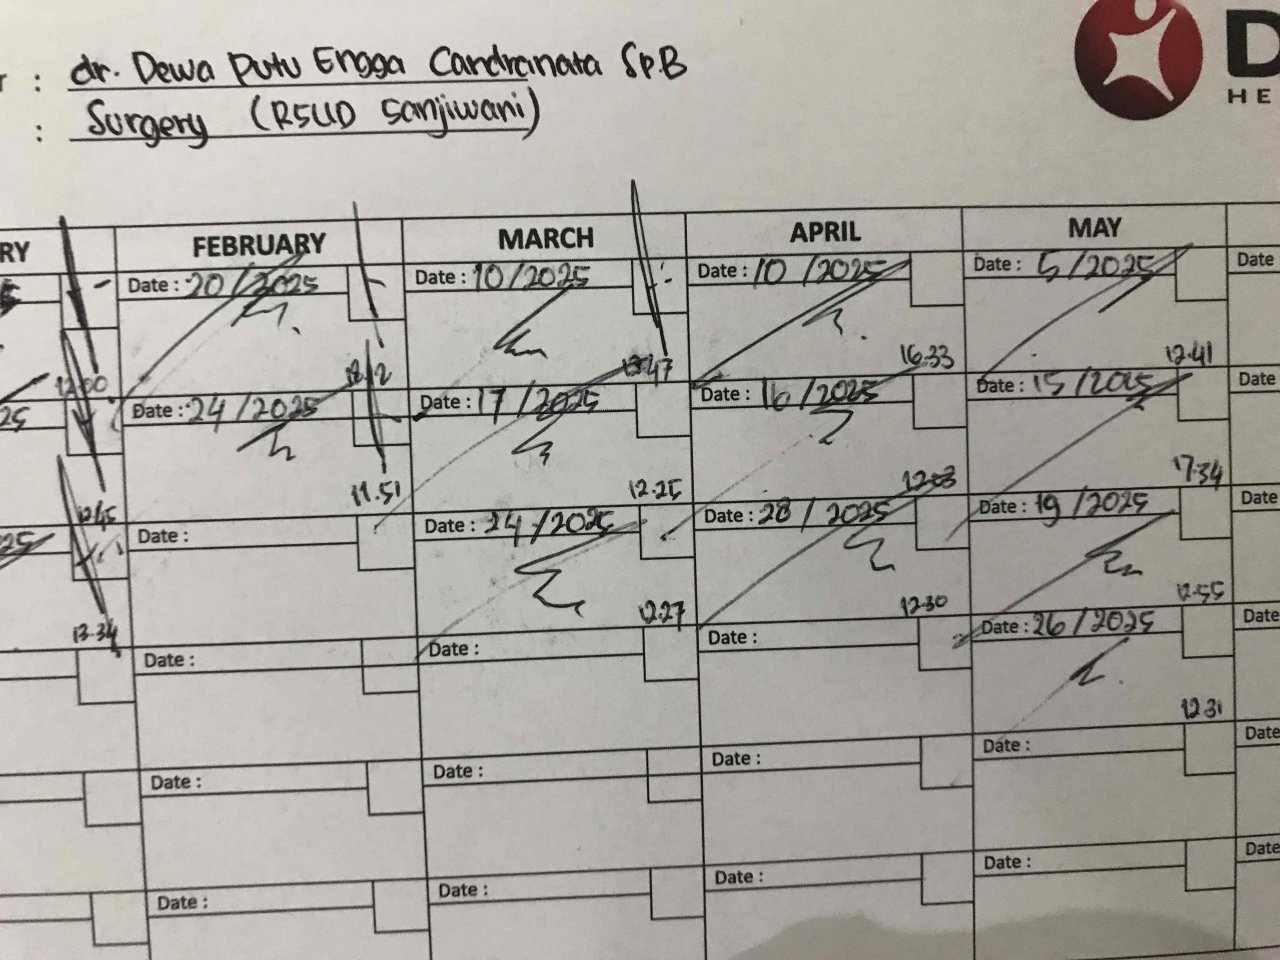 : dr. Dewa Putu Engga Candranata Sp.B
: Surgery (RSUD Sanjiwani)
D
HE
RY FEBRUARY MARCH APRIL MAY
Date : 20/2025 Date : 10/2025 Date : 10/2025 Date : 5/2025 Date
12.00 13.47 16.33 12.41
25 Date : 24/2025 Date : 17/2025 Date : 16/2025 Date : 15/2025 Date
12.45 11.51 12.25 12.03 17.34
25 Date : Date : 24/2025 Date : 28/2025 Date : 19/2025 Date
13.34 12.27 12.30 12.55
Date : Date : Date : Date : 26/2025 Date
12.31
Date : Date : Date : Date : Date
Date : Date : Date : Date : Date